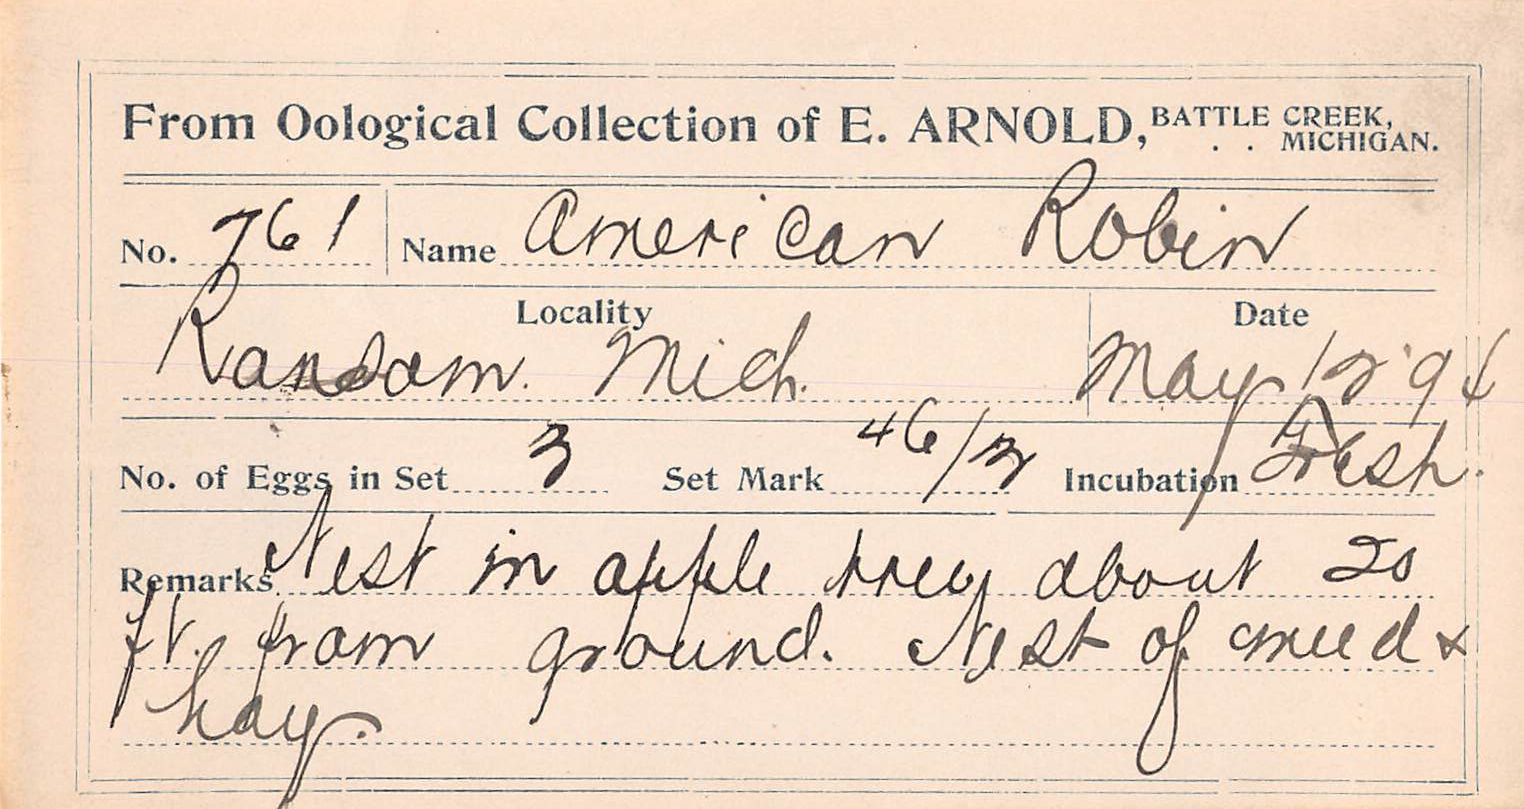 From Oological Collection of E. ARNOLD, BATTLE CREEK, . . MICHIGAN.
No. 761 Name American Robin
Locality Date
Ransom. Mich. May 12 '94
No. of Eggs in Set 3 Set Mark 46/3 Incubation Fresh.
Remarks Nest in apple tree, about 20
ft. from ground. Nest of mud &
hay.